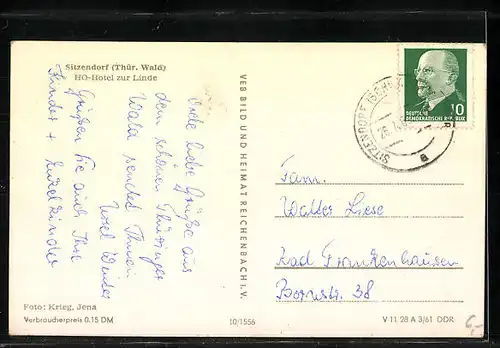 Sitzendorf (Thür. Wald)
HO-Hotel zur Linde
Viele liebe Grüße aus
dem schönen Thüringer
Wald sendet Ihnen
Grüßen Sie auch Ihre
Kinder + Enkelkinder
VEB BILD UND HEIMAT REICHENBACH i. V.
Foto: Krieg, Jena
Verbraucherpreis 0.15 DM
10/1556
SITZENDORF
B
10
DEUTSCHE
DEMOKRATISCHE REPUBLIK
Fam.
Walter Liese
Bad Frankenhausen
Bornstr. 38
V 11 28 A 3/61 DDR
6,-